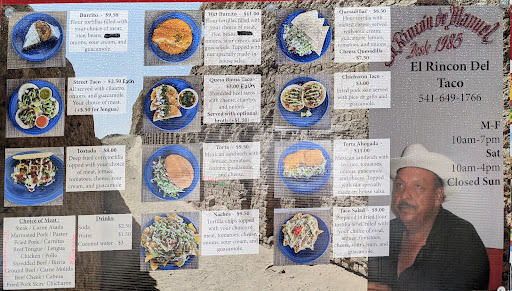 Burrito - $9.50
Flour tortillas filled
with your choice of
meat, rice, beans,
onions, sour cream, and
guacamole.
Street Taco - $2.50 Each
All served with
cilantro, onions,
and guacamole.
Your choice of
meat.
(+$.50 for lengua)
Tostada - $8.00
Deep fried corn tortilla
topped with your choice
of meat, lettuce,
tomatoes, cheese,
sour cream, and guacamole.
Choice of Meat:
Steak / Carne Asada
Marinated Pork / Pastor
Fried Pork / Carnitas
Beef Tongue / Lengua
Chicken / Pollo
Shredded Beef / Birria
Ground Beef / Carne Molida
Beef Cheek / Cabeza
Fried Pork Skin / Chicharon
Drinks
Soda
Water
Coconut water - $3
Wet Burrito - $11.00
Flour tortillas filled
with your choice of
meat, rice, beans,
sour cream, and
guacamole. Topped with
our specialty
made sauce.
Quesa Birria Tacos-
$3.00 Each
Shredded beef tacos
with cheese, cilantro,
and onion.
Served with optional
broth (+$1.50)
Torta -
Mexican sandwich with
lettuce, tomatoes,
onions,
and guacamole.
Nachos -
Tortilla chips topped
with your choice of
meat, tomatoes, cheese,
onions, sour cream, and
guacamole.
Quesadilla -
Flour tortilla
Cheese Quesadilla
$7.50
Chicharon Taco -
$3.00
Fried pork skin served
with pico de gallo and
guacamole.
Torta Ahogada -
$13.00
Mexican sandwich with
lettuce, tomatoes,
onions,
and guacamole.
Topped with
our specialty
sauce.
Taco Salad -
Prepared in fried
flour tortilla bowl
filled with your choice
of meat,
lettuce, tomato,
cheese, sour cream, and
guacamole.
El Rincón de Manuel
Desde 1985
El Rincon Del
Taco
541-649-1766
M-F
10am-7pm
Sat
10am-4pm
Closed Sun